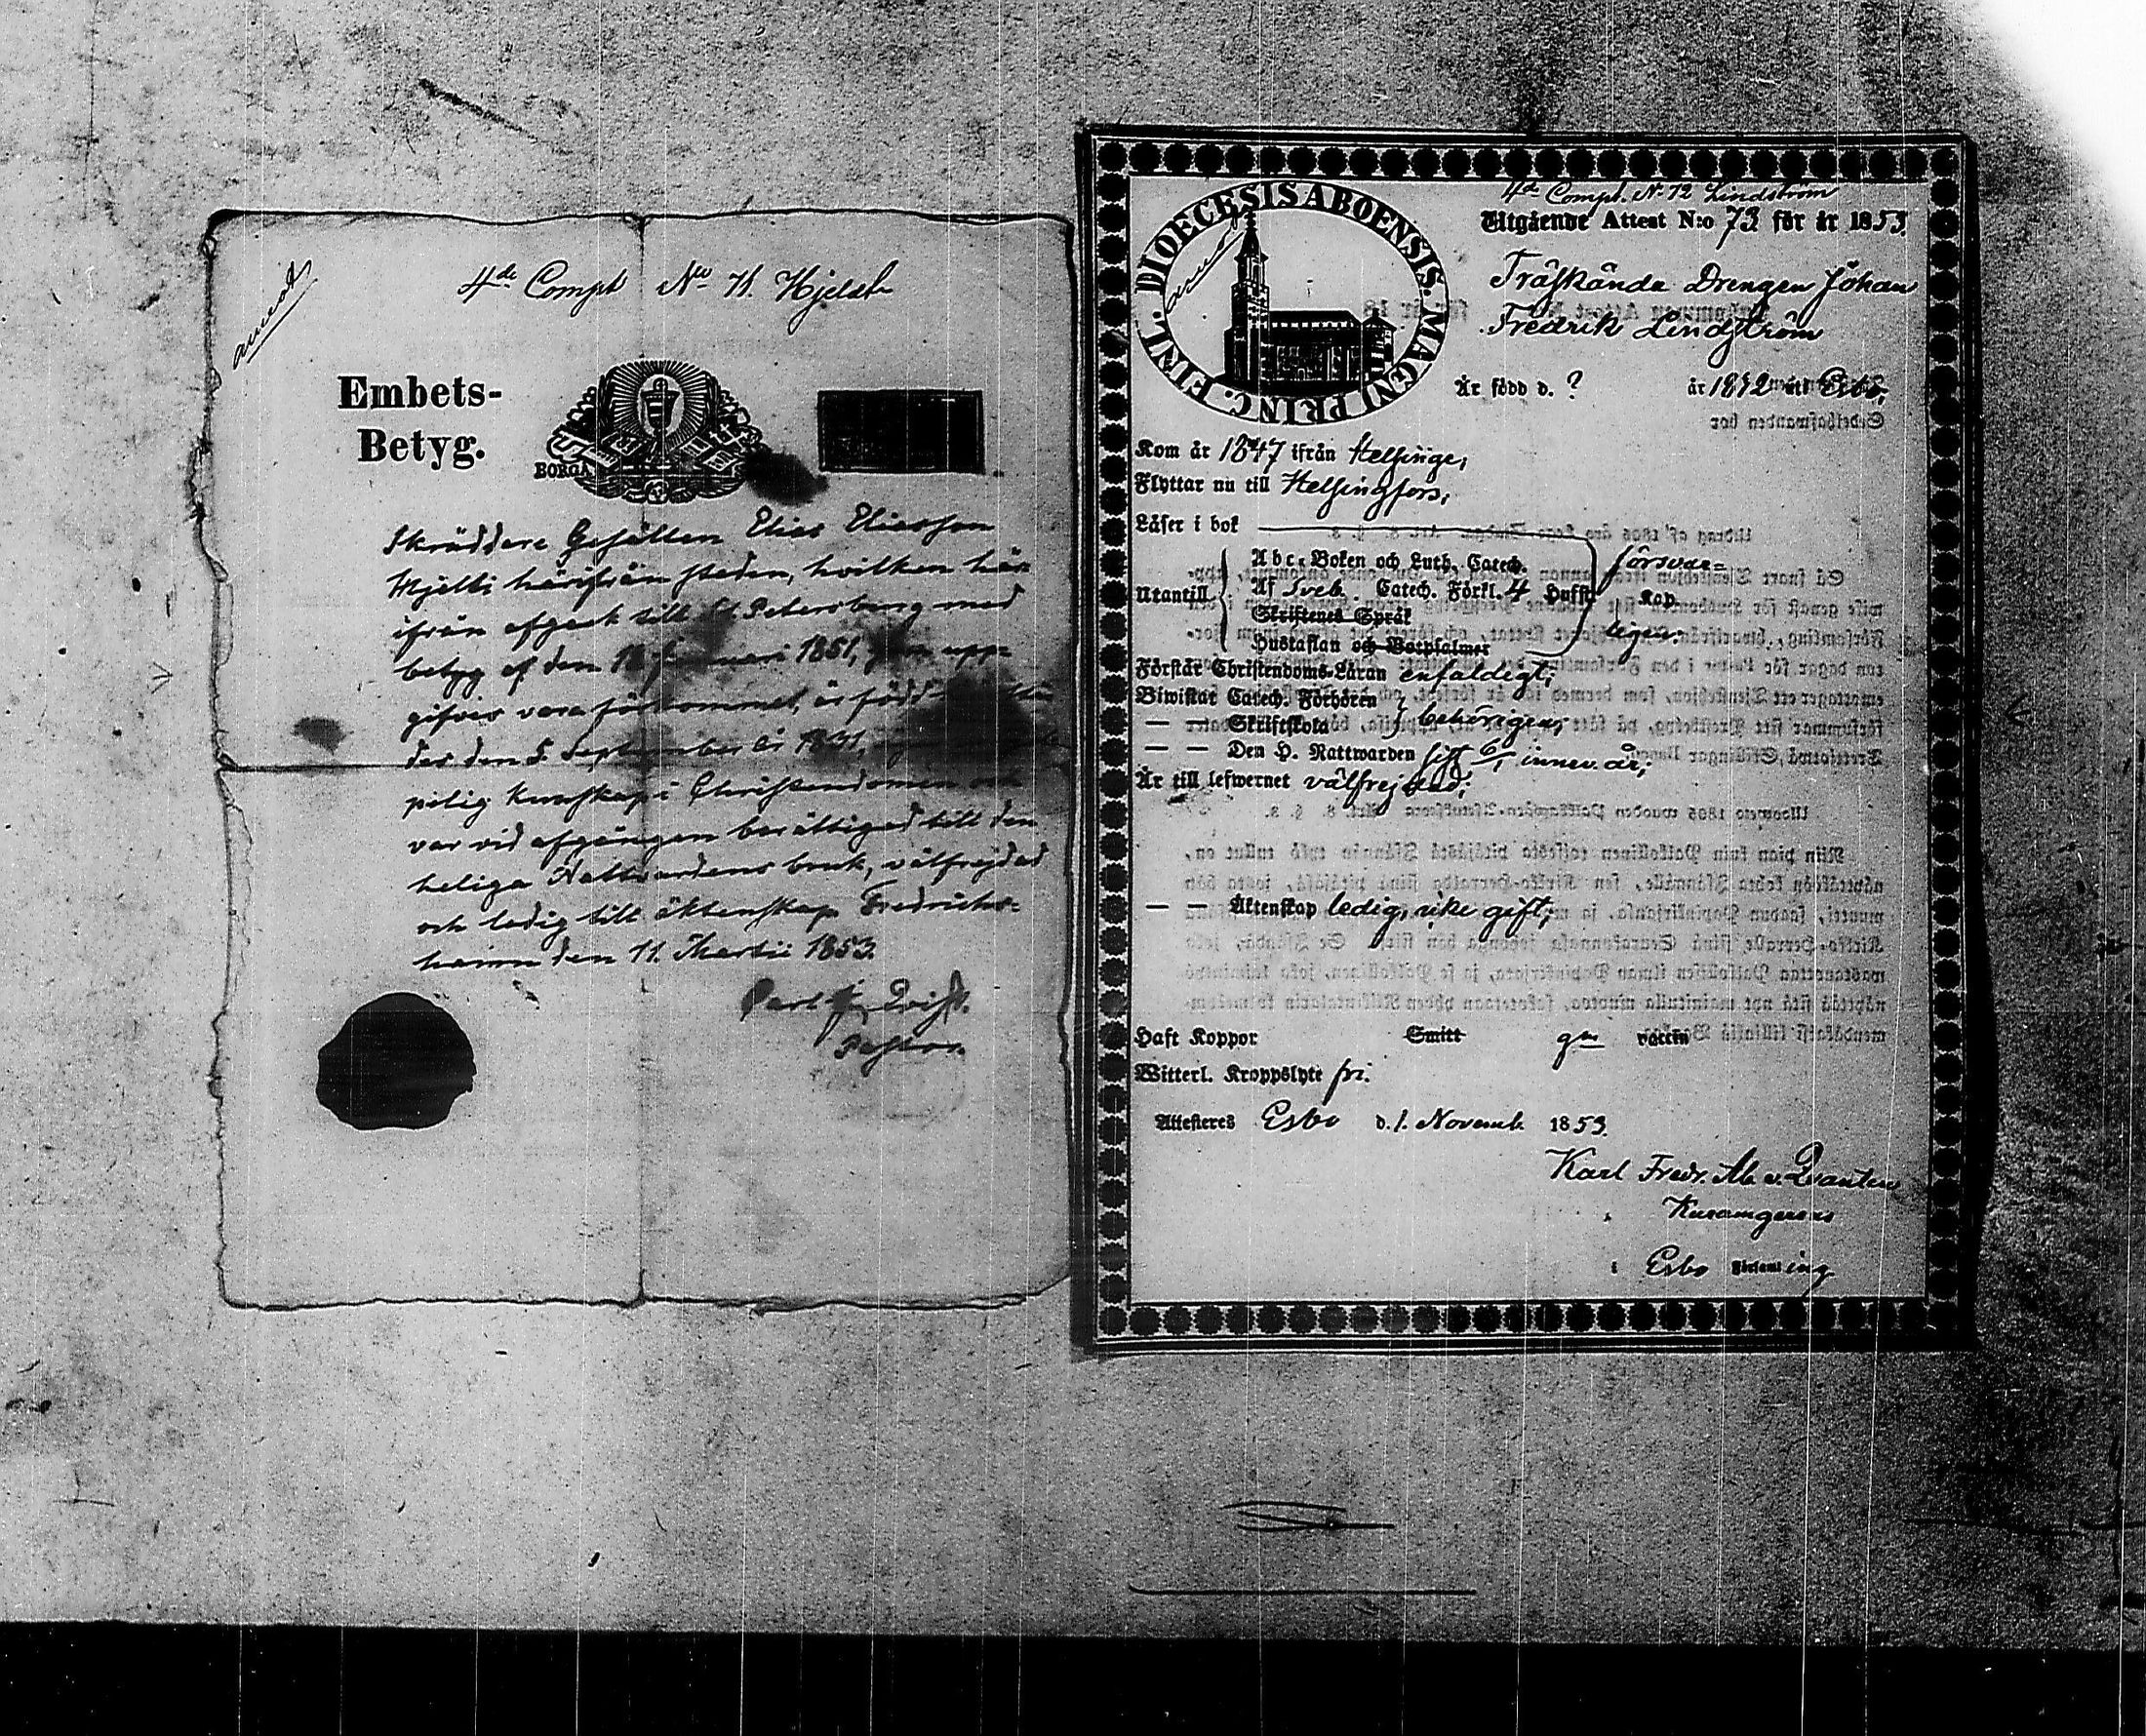 4de Compt No 71. Hjelt
Embets-
Betyg.
BORGÅ
Skräddare Gesällen Elias Eliasson
Hjelt härifrån staden, hvilken här
ifrån afgick till St Petersburg med
betyg af den 18 Januari 1851, som upp-
gifves vara förkommet, är född
den 5 September år 1831,
pelig kunskap i Christendomen och
var vid afgången berättigad till den
heliga Nattvardens bruk, välfrejdad
och ledig till äktenskap Fredrichs-
hamn den 11. Martii 1853.
Qvist.
Pastor.
DIOECESIS ABOENSIS. MAGNI PRINC. FINL.
4de Compt. No 72 Lindström
Utgående Attest N:o 73 för år 1853.
Träskända Drengen Johan
Fredrik Lindström
Är född d. ? år 1832 uti Esbo.
Kom år 1847 ifrån Helsinge;
Flyttar nu till Helsingfors;
Läser i bok
Abc-Boken och Luth. Catech.
försvar-
Utantill Af Sveb. Catech. Förkl. 4 Hufst
Kap
Skriftenes Språk
ligen.
Hustaflan och Botpsalmer
Förstår Christendoms-Läran enfaldigt;
Biwistat Catech. Förhören
— — Skriftskola behörigen;
— — Den H. Nattwarden sist innev. år;
Är till lefwernet välfrejdad;
— — Äktenskap ledig, icke gift;
Haft Koppor Smitt gm vaccin
Witterl. Kroppslyte fri.
Attesteras Esbo d. 1. Novemb. 1853.
Karl Fredr. Ab. v. Qvanten
i Esbo Församling